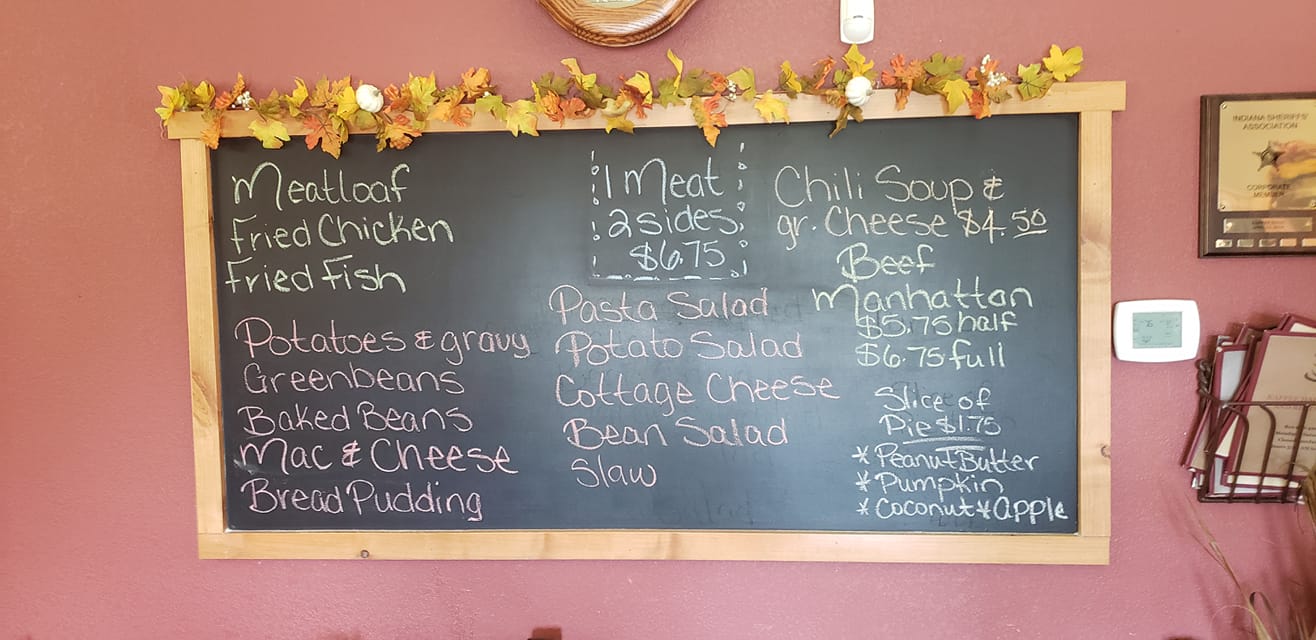 Meatloaf
Fried Chicken
Fried Fish
Potatoes & gravy
Greenbeans
Baked Beans
Mac & Cheese
Bread Pudding
1 Meat
2 sides
$6.75
Pasta Salad
Potato Salad
Cottage Cheese
Bean Salad
Slaw
Chili Soup &
gr. Cheese $4.50
Beef
Manhattan
$5.75 half
$6.75 full
Slice of
Pie $1.75
* Peanut Butter
* Pumpkin
* Coconut * Apple
INDIANA SHERIFFS'
ASSOCIATION
CORPORATE
MEMBER